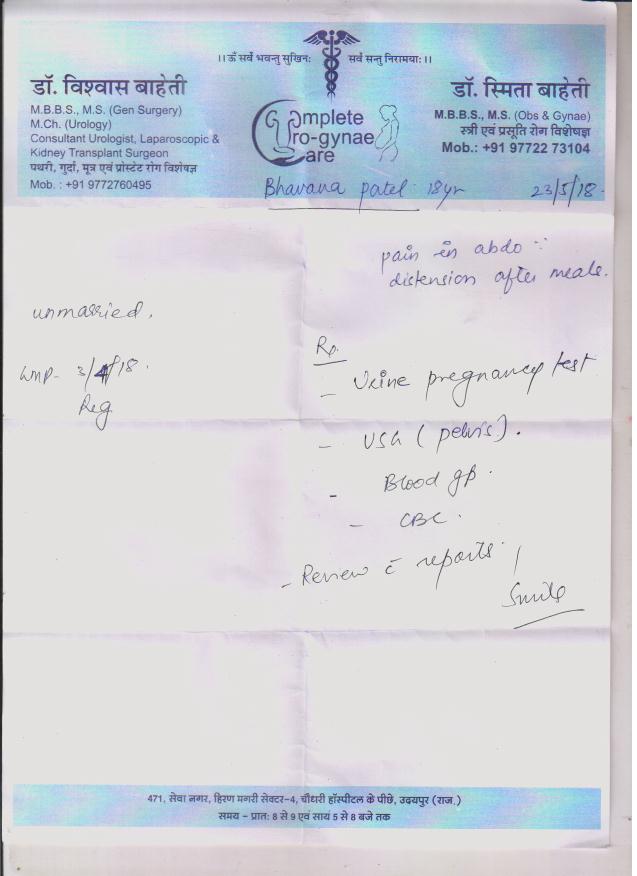 ।। ॐ सर्वे भवन्तु सुखिनः सर्वे सन्तु निरामयाः ।।
डॉ. विश्वास बाहेती
M.B.B.S., M.S. (Gen Surgery)
M.Ch. (Urology)
Consultant Urologist, Laparoscopic &
Kidney Transplant Surgeon
पथरी, गुर्दा, मूत्र एवं प्रोस्टेट रोग विशेषज्ञ
Mob. : +91 9772760495
Complete
Uro-gynae
Care
डॉ. स्मिता बाहेती
M.B.B.S., M.S. (Obs & Gynae)
स्त्री एवं प्रसूति रोग विशेषज्ञ
Mob.: +91 97722 73104
Bhavana patel 18yr 23/5/18.
pain in abdo
distension after meals.
unmarried.
LMP- 3/4/18.
Reg
Rp.
- Urine pregnancy test
- USG (pelvis).
- Blood gp.
- CBC.
- Review c̄ reports.
471, सेवा नगर, हिरण मगरी सेक्टर-4, चौधरी हॉस्पीटल के पीछे, उदयपुर (राज.)
समय - प्रातः 8 से 9 एवं सायं 5 से 8 बजे तक